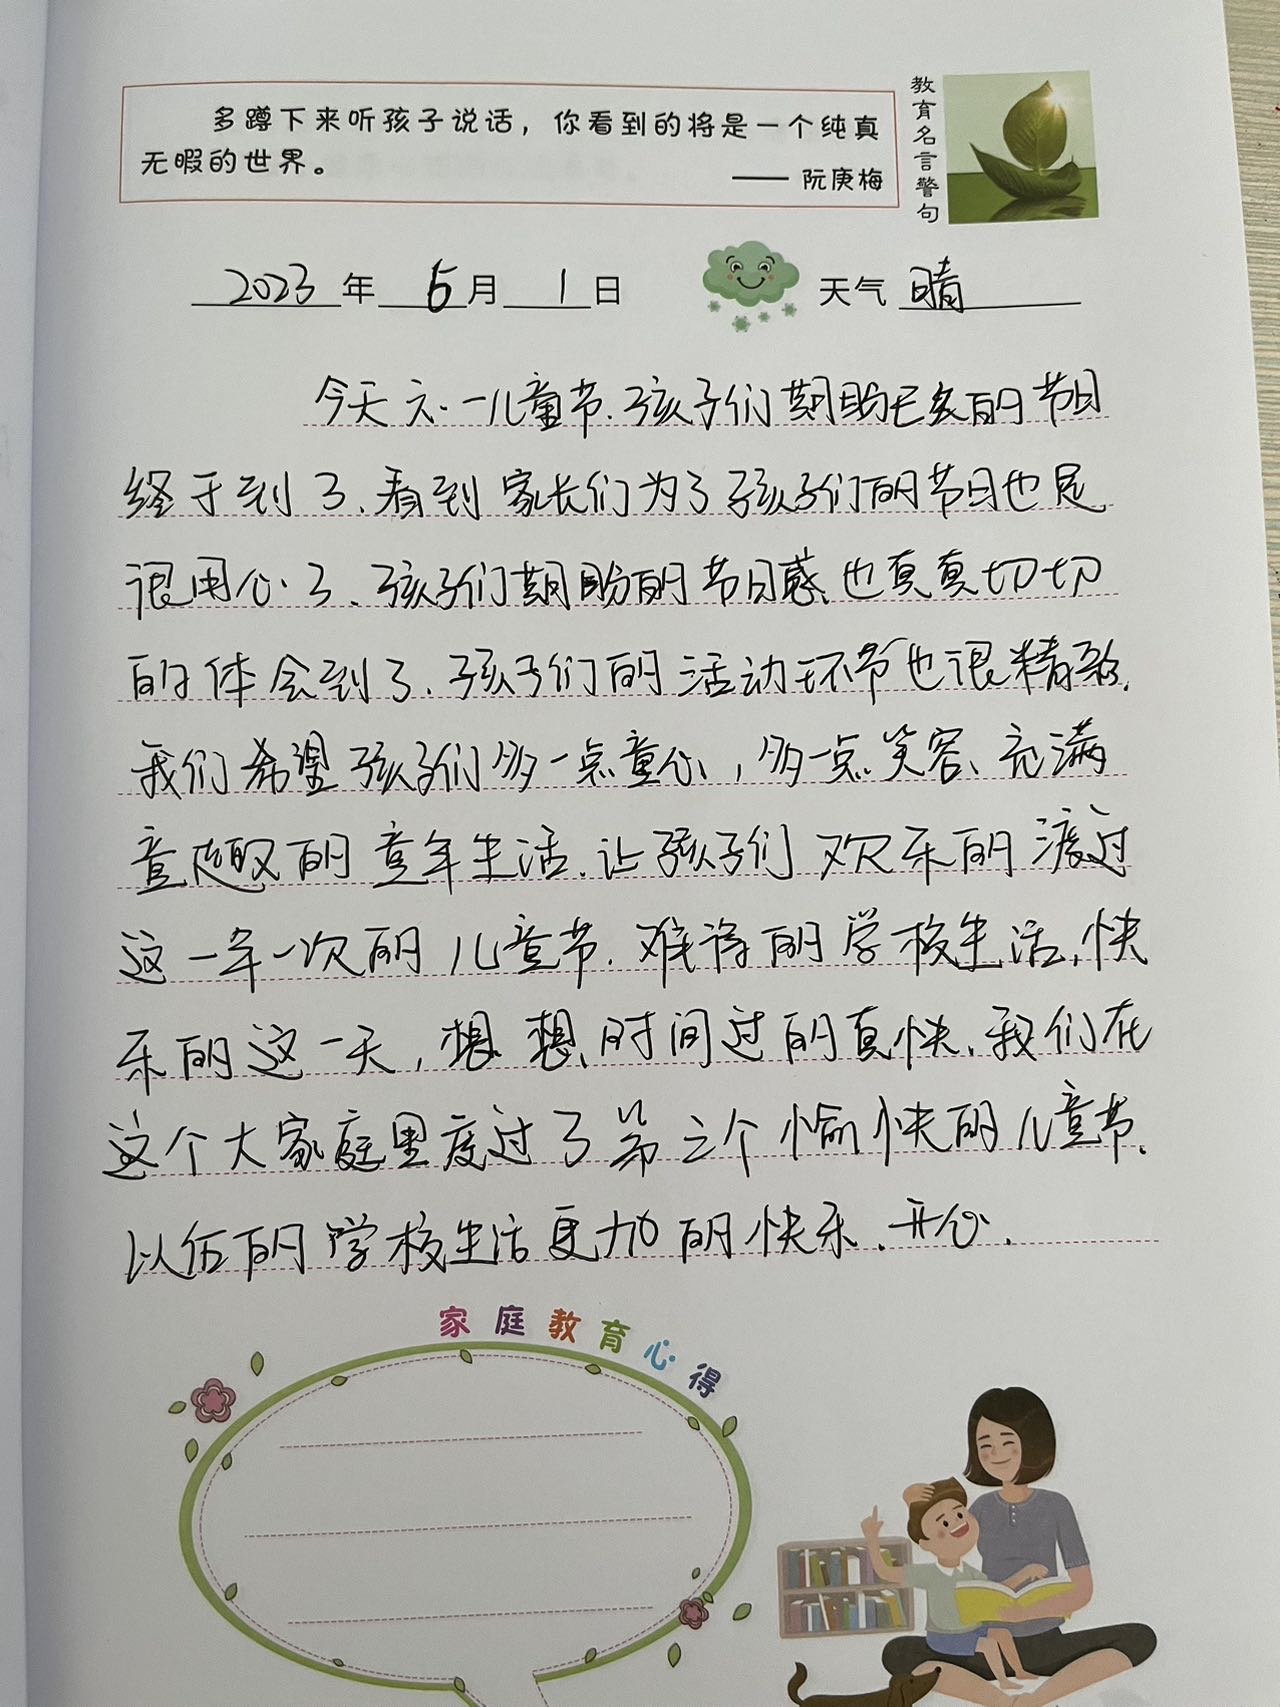 多蹲下来听孩子说话，你看到的将是一个纯真
无暇的世界。
—— 阮庚梅
教育名言警句
2023年 6月 1日 天气 晴
今天六·一儿童节.孩子们期盼已多的节日
终于到了.看到家长们为了孩子们的节日也是
很用心了.孩子们期盼的节日感.也真真切切
的体会到了.孩子们的活动环节也很精彩.
我们希望孩子们多一点童心，多一点笑容、充满
童趣的童年生活.让孩子们欢乐的渡过
这一年一次的儿童节.难得的学校生活,快
乐的这一天，想想,时间过的真快.我们在
这个大家庭里度过了第三个愉快的儿童节.
以后的学校生活更加的快乐.开心.
家庭教育心得